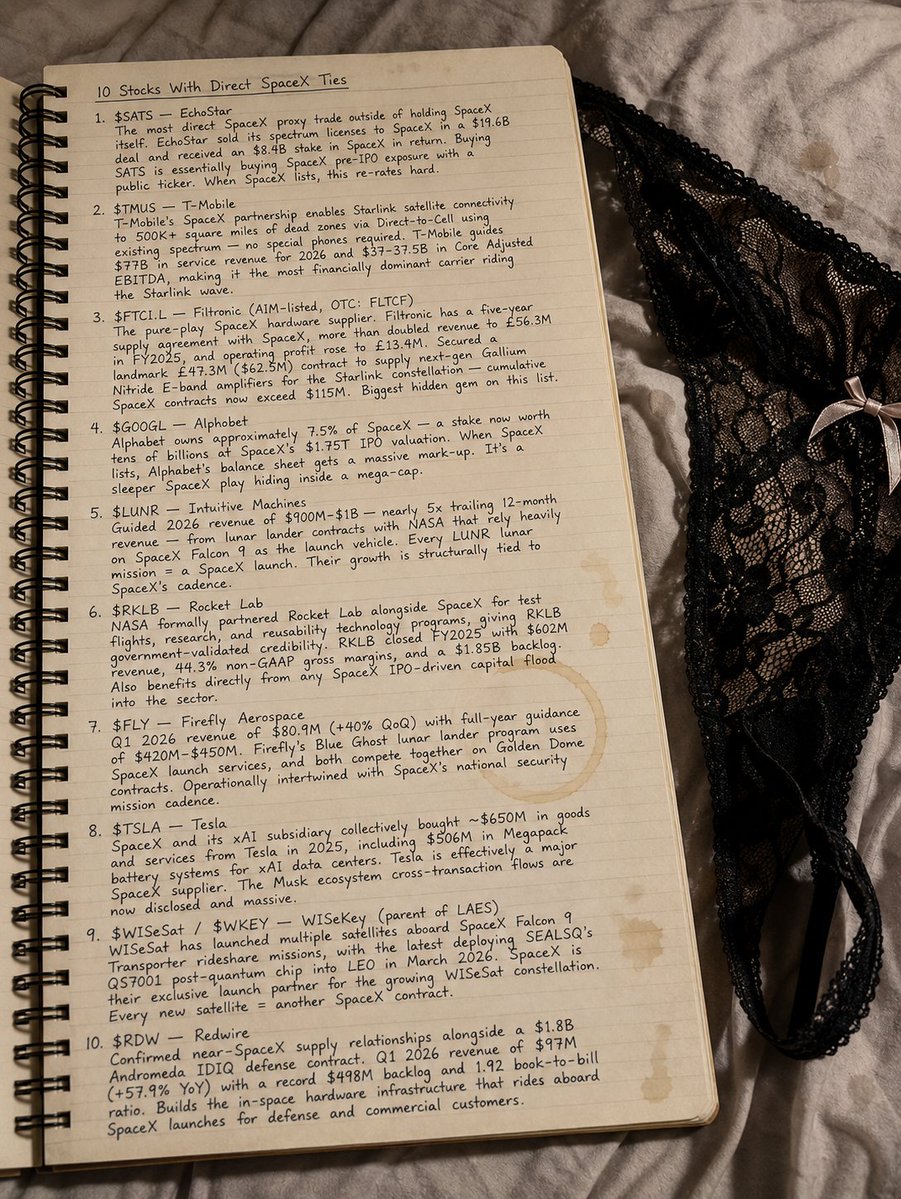 10 Stocks With Direct SpaceX Ties
1. $SATS — EchoStar
The most direct SpaceX proxy trade outside of holding SpaceX
itself. EchoStar sold its spectrum licenses to SpaceX in a $19.6B
deal and received an $8.4B stake in SpaceX in return. Buying
SATS is essentially buying SpaceX pre-IPO exposure with a
public ticker. When SpaceX lists, this re-rates hard.
2. $TMUS — T-Mobile
T-Mobile's SpaceX partnership enables Starlink satellite connectivity
to 500K+ square miles of dead zones via Direct-to-Cell using
existing spectrum — no special phones required. T-Mobile guides
$77B in service revenue for 2026 and $37-37.5B in Core Adjusted
EBITDA, making it the most financially dominant carrier riding
the Starlink wave.
3. $FTCI.L — Filtronic (AIM-listed, OTC: FLTCF)
The pure-play SpaceX hardware supplier. Filtronic has a five-year
supply agreement with SpaceX, more than doubled revenue to £56.3M
in FY2025, and operating profit rose to £13.4M. Secured a
landmark £47.3M ($62.5M) contract to supply next-gen Gallium
Nitride E-band amplifiers for the Starlink constellation — cumulative
SpaceX contracts now exceed $115M. Biggest hidden gem on this list.
4. $GOOGL — Alphabet
Alphabet owns approximately 7.5% of SpaceX — a stake now worth
tens of billions at SpaceX's $1.75T IPO valuation. When SpaceX
lists, Alphabet's balance sheet gets a massive mark-up. It's a
sleeper SpaceX play hiding inside a mega-cap.
5. $LUNR — Intuitive Machines
Guided 2026 revenue of $900M-$1B — nearly 5x trailing 12-month
revenue — from lunar lander contracts with NASA that rely heavily
on SpaceX Falcon 9 as the launch vehicle. Every LUNR lunar
mission = a SpaceX launch. Their growth is structurally tied to
SpaceX's cadence.
6. $RKLB — Rocket Lab
NASA formally partnered Rocket Lab alongside SpaceX for test
flights, research, and reusability technology programs, giving RKLB
government-validated credibility. RKLB closed FY2025 with $602M
revenue, 44.3% non-GAAP gross margins, and a $1.85B backlog.
Also benefits directly from any SpaceX IPO-driven capital flood
into the sector.
7. $FLY — Firefly Aerospace
Q1 2026 revenue of $80.9M (+40% QoQ) with full-year guidance
of $420M-$450M. Firefly's Blue Ghost lunar lander program uses
SpaceX launch services, and both compete together on Golden Dome
contracts. Operationally intertwined with SpaceX's national security
mission cadence.
8. $TSLA — Tesla
SpaceX and its xAI subsidiary collectively bought ~$650M in goods
and services from Tesla in 2025, including $506M in Megapack
battery systems for xAI data centers. Tesla is effectively a major
SpaceX supplier. The Musk ecosystem cross-transaction flows are
now disclosed and massive.
9. $WISeSat / $WKEY — WISeKey (parent of LAES)
WISeSat has launched multiple satellites aboard SpaceX Falcon 9
Transporter rideshare missions, with the latest deploying SEALSQ's
QS7001 post-quantum chip into LEO in March 2026. SpaceX is
their exclusive launch partner for the growing WISeSat constellation.
Every new satellite = another SpaceX contract.
10. $RDW — Redwire
Confirmed near-SpaceX supply relationships alongside a $1.8B
Andromeda IDIQ defense contract. Q1 2026 revenue of $97M
(+57.9% YoY) with a record $498M backlog and 1.92 book-to-bill
ratio. Builds the in-space hardware infrastructure that rides aboard
SpaceX launches for defense and commercial customers.